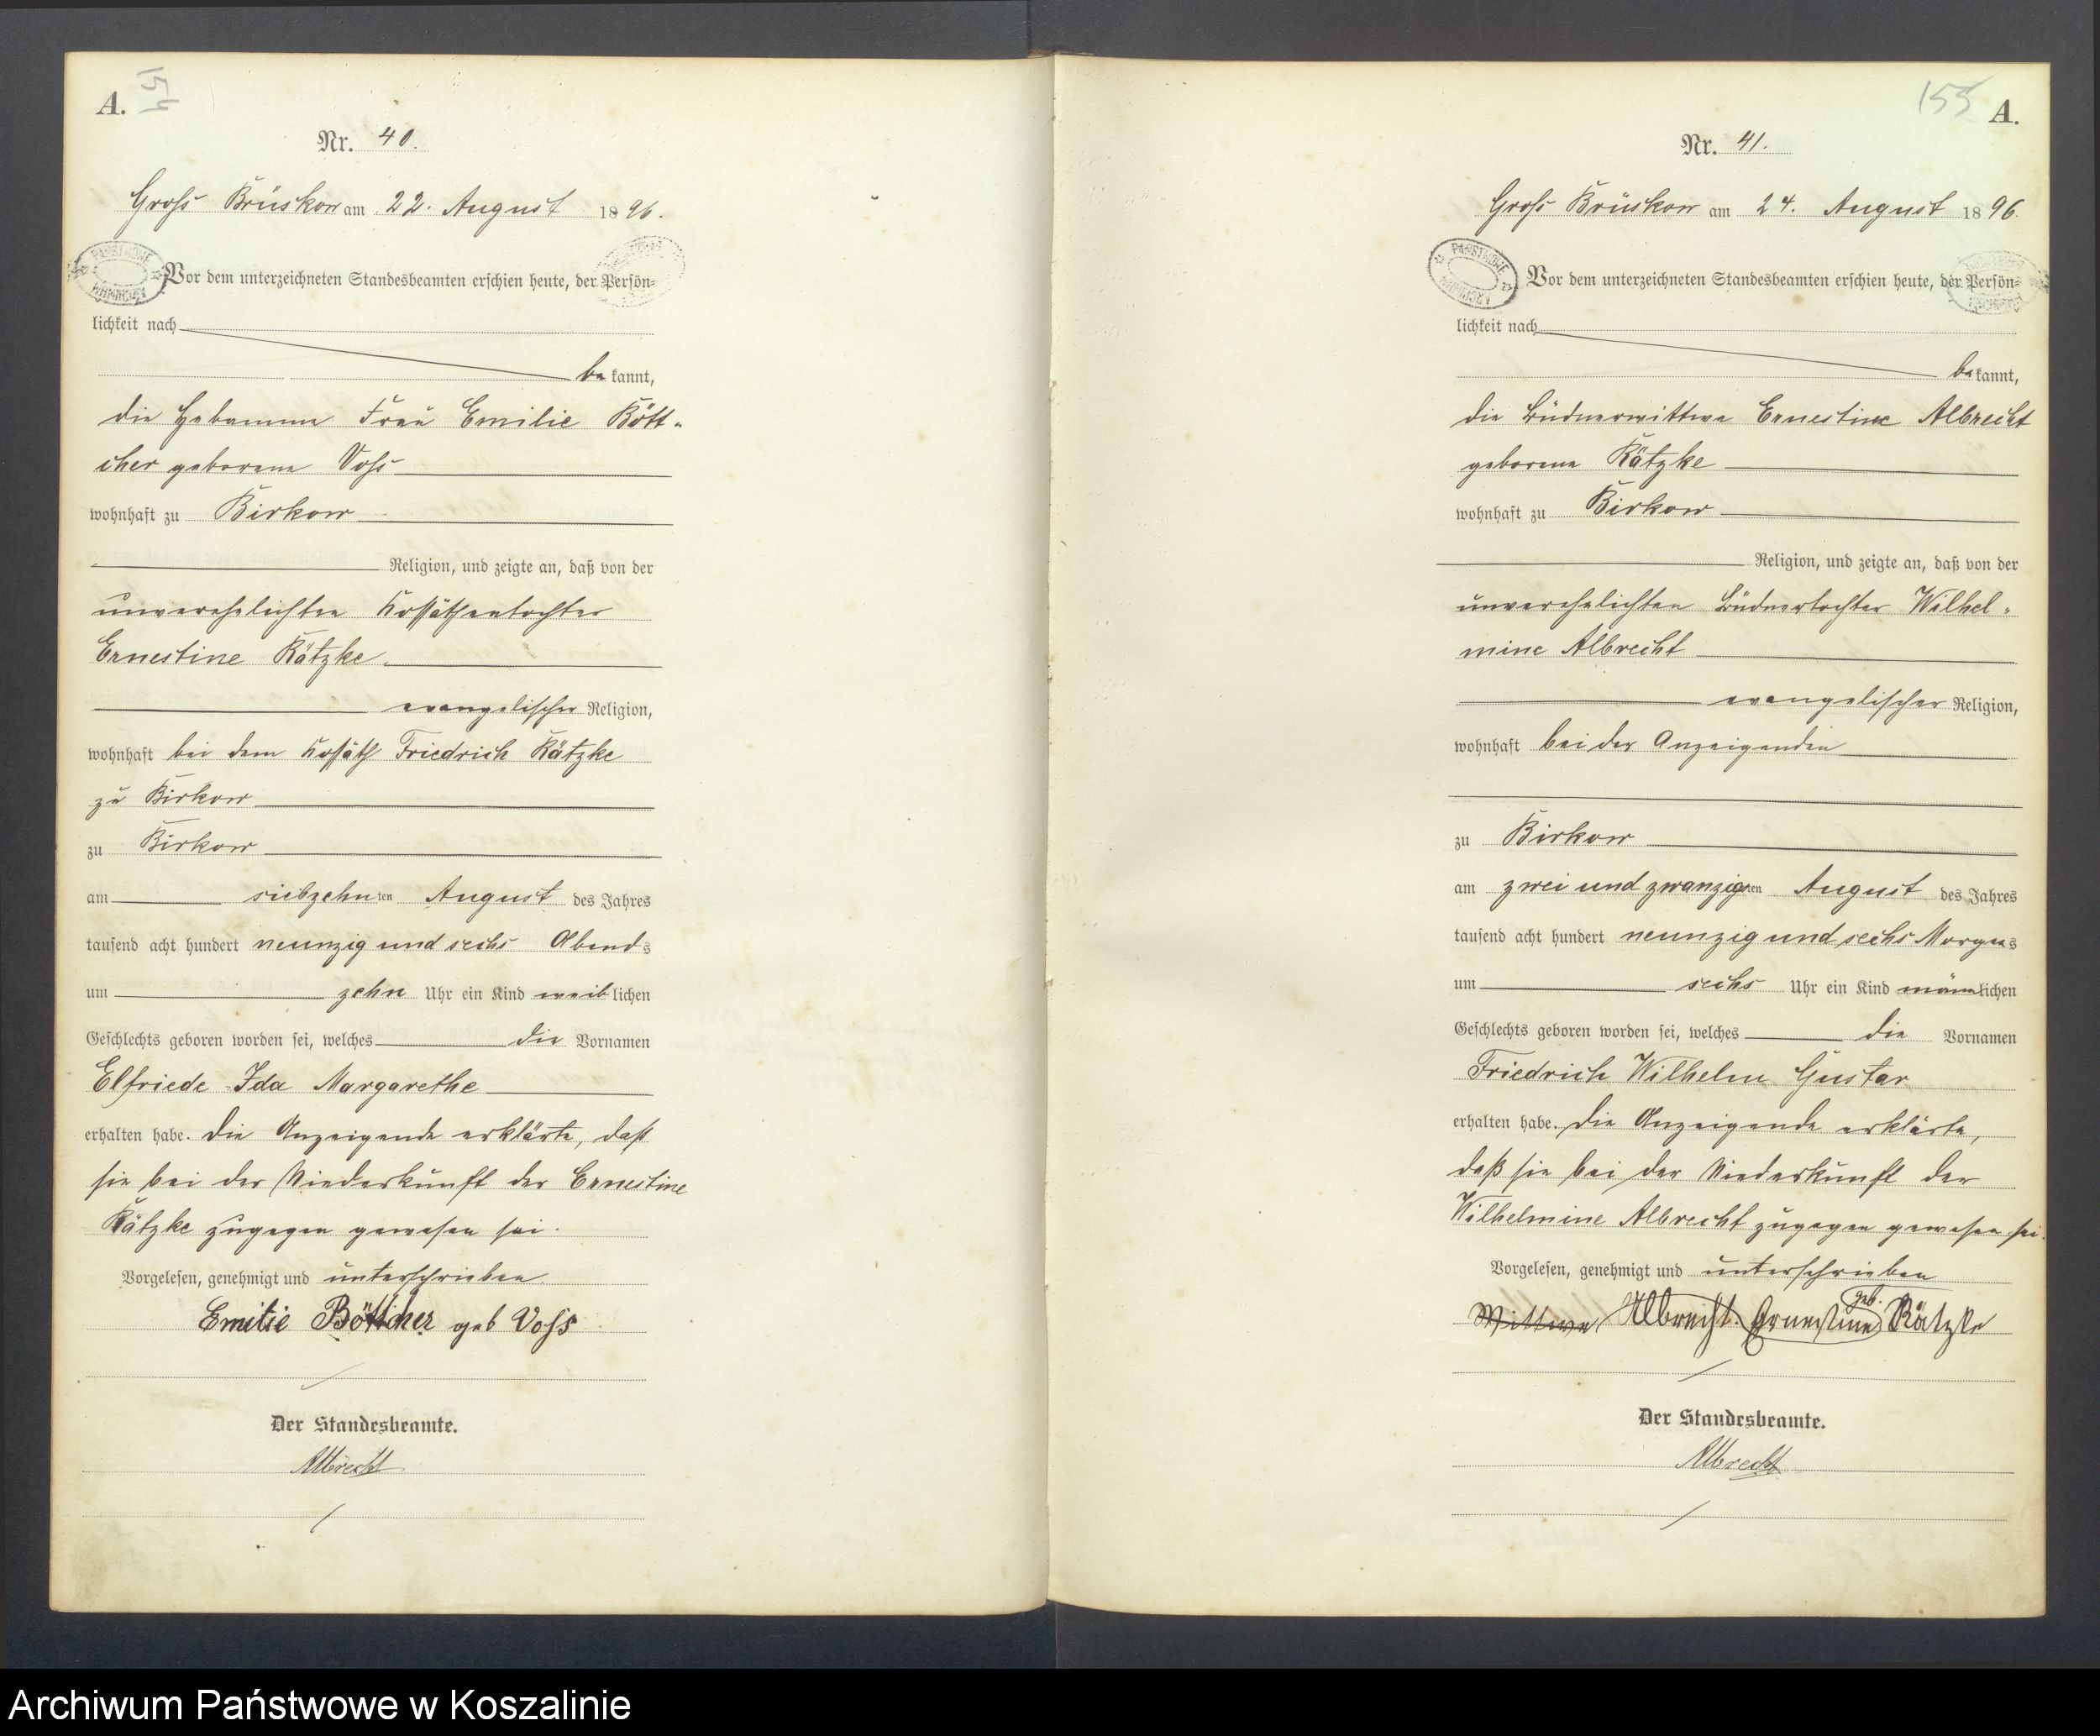 A.
154
Nr. 40.
Gross Brüskow am 22. August 1896.
Vor dem unterzeichneten Standesbeamten erschien heute, der Persön-
lichkeit nach
bekannt,
die Hebamme Frau Emilie Bött-
cher geborene Voss
wohnhaft zu Birkow
Religion, und zeigte an, daß von der
unverehelichten Kossäthentochter
Ernestine Rätzke
evangelischer Religion,
wohnhaft bei dem Kossäth Friedrich Rätzke
zu Birkow
zu Birkow
am siebzehnten August des Jahres
tausend acht hundert neunzig und sechs Abends
um zehn Uhr ein Kind weiblichen
Geschlechts geboren worden sei, welches die Vornamen
Elfriede Ida Margarethe
erhalten habe. Die Anzeigende erklärte, daß
sie bei der Niederkunft der Ernestine
Rätzke zugegen gewesen sei.
Vorgelesen, genehmigt und unterschrieben
Emilie Böttcher geb Voss
Der Standesbeamte.
Albrecht
155
A.
Nr. 41.
Gross Brüskow am 24. August 1896.
PAŃSTWOWE ARCHIWUM
Vor dem unterzeichneten Standesbeamten erschien heute, der Persön-
lichkeit nach
bekannt,
die Büdnerwittwe Ernestine Albrecht
geborene Rätzke
wohnhaft zu Birkow
Religion, und zeigte an, daß von der
unverehelichten Büdnertochter Wilhel-
mine Albrecht
evangelischer Religion,
wohnhaft bei der Anzeigenden
zu Birkow
am zwei und zwanzigsten August des Jahres
tausend acht hundert neunzig und sechs Morgens
um sechs Uhr ein Kind männlichen
Geschlechts geboren worden sei, welches die Vornamen
Friedrich Wilhelm Gustav
erhalten habe. Die Anzeigende erklärte,
daß sie bei der Niederkunft der
Wilhelmine Albrecht zugegen gewesen sei.
Vorgelesen, genehmigt und unterschrieben
Wittwe Albrecht. Ernestine geb. Rätzke
Der Standesbeamte.
Albrecht
Archiwum Państwowe w Koszalinie